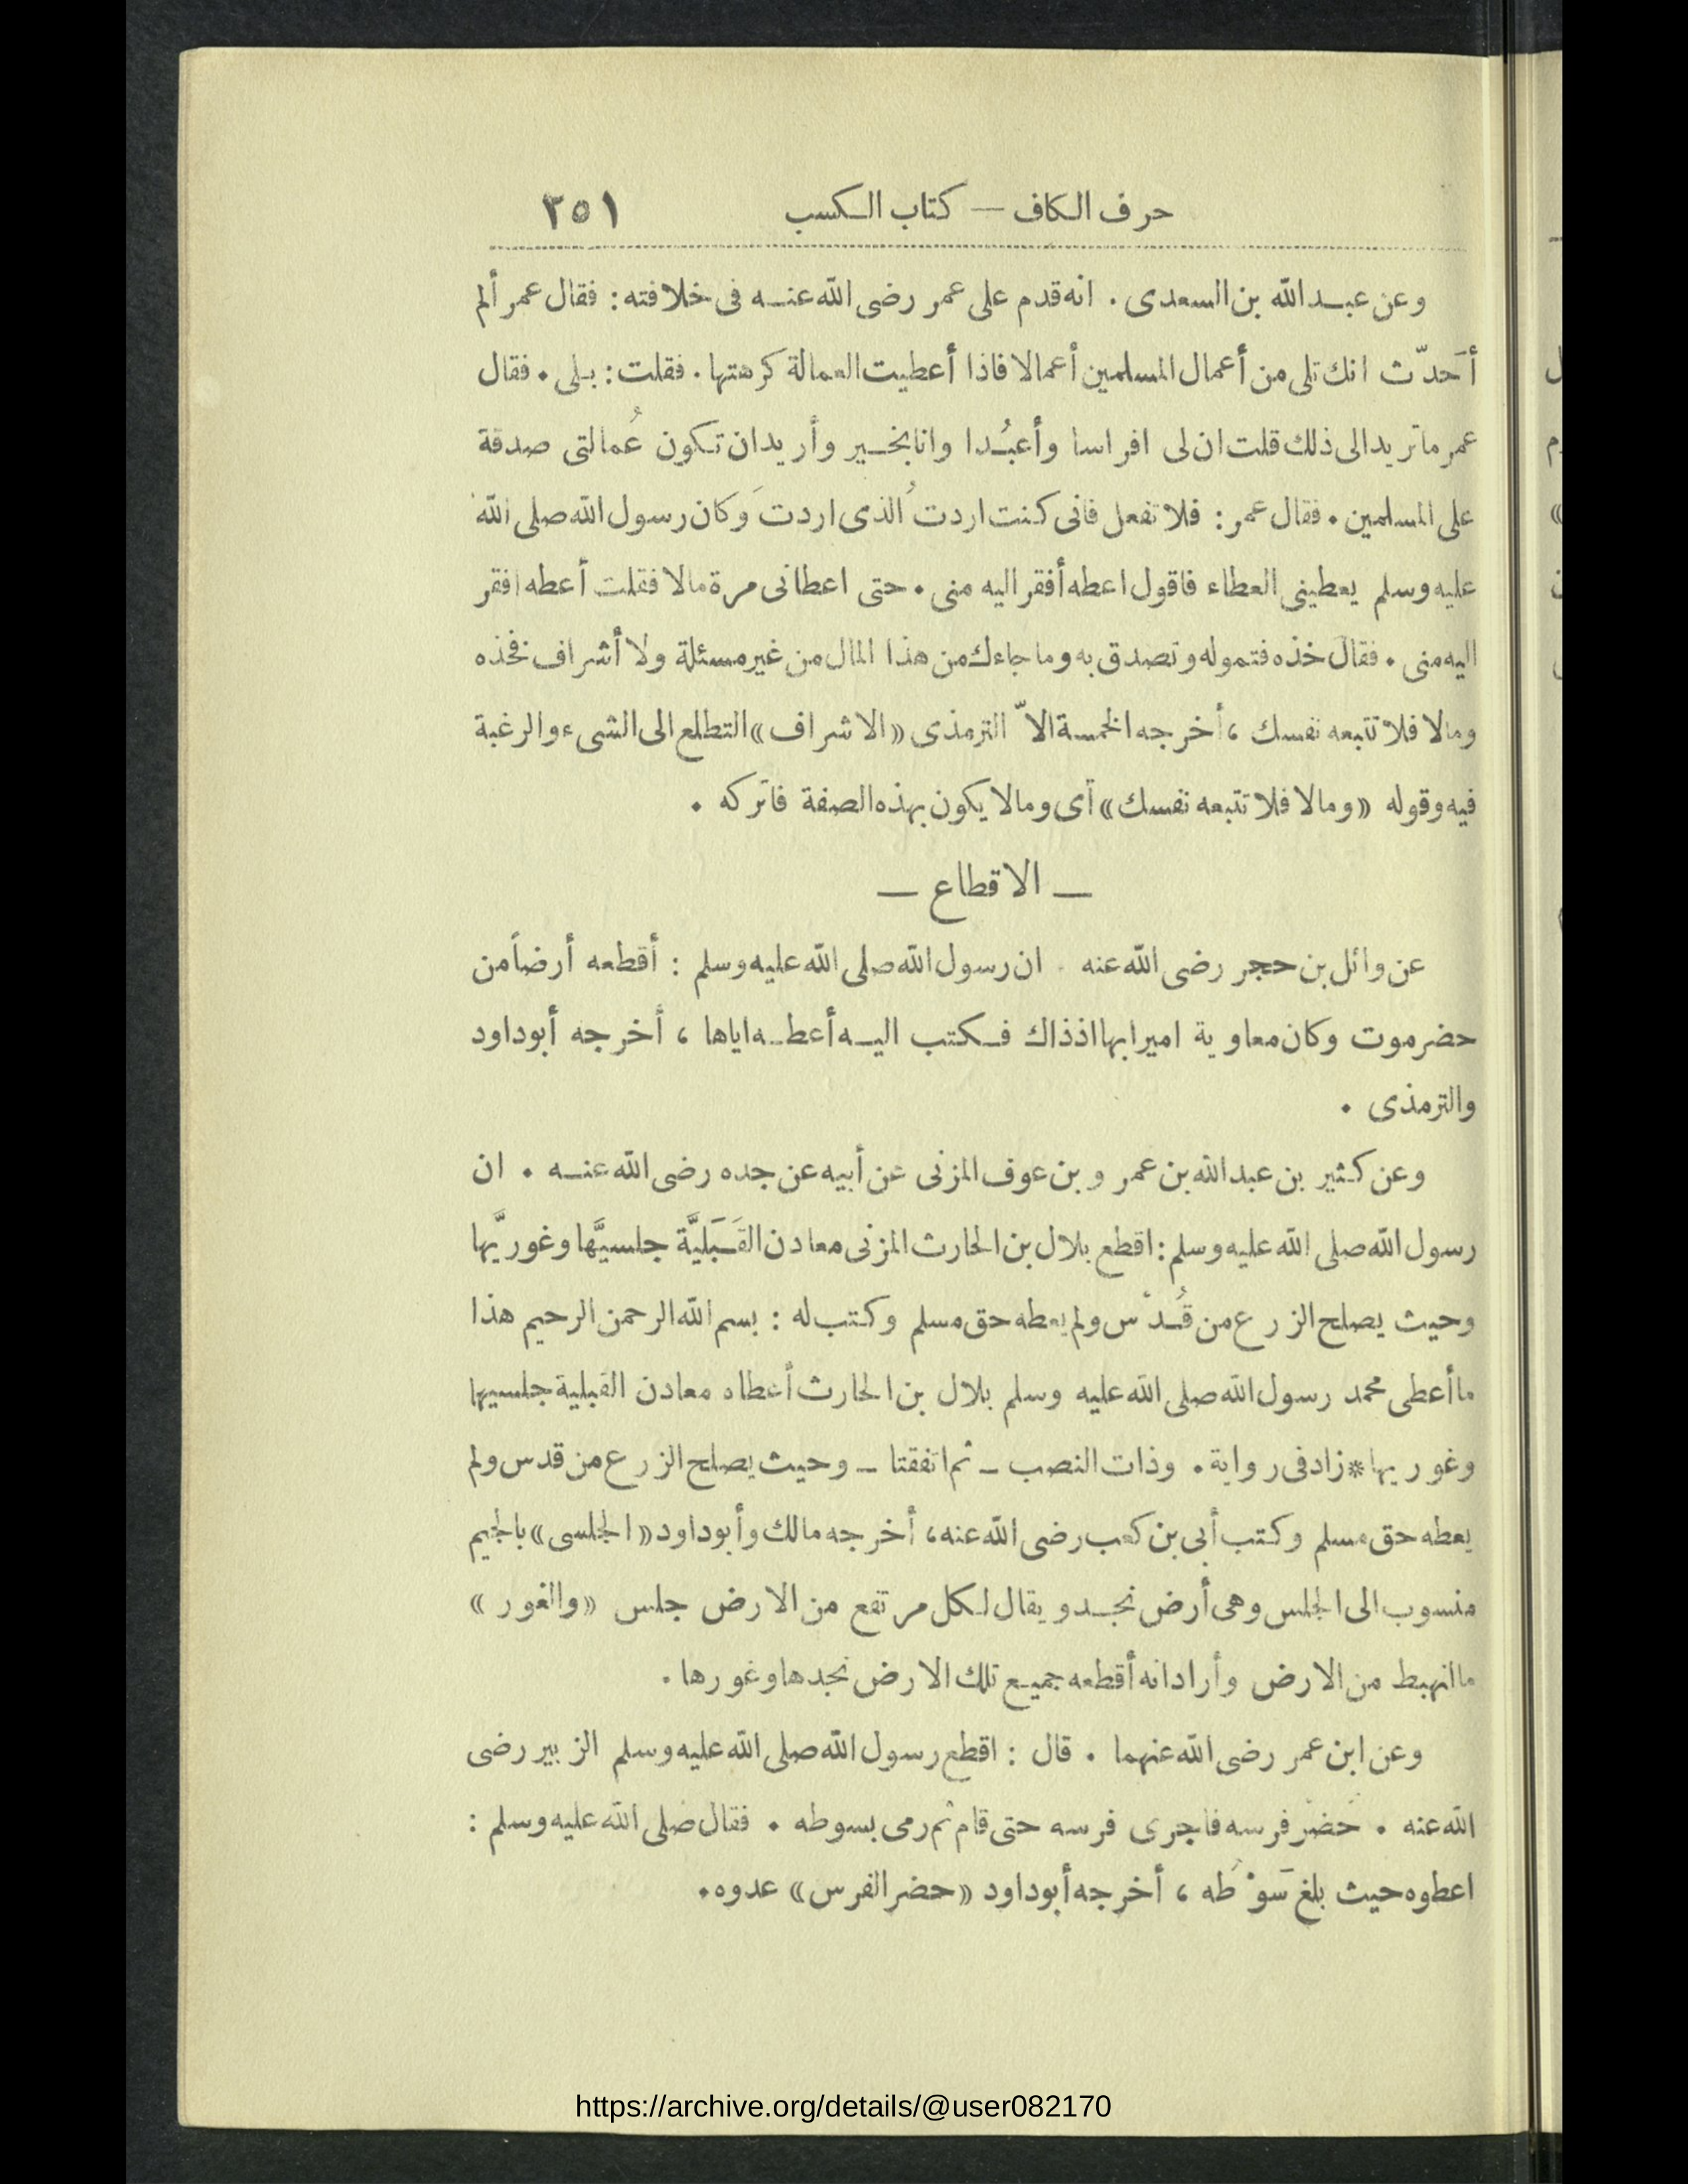 حرف الكاف — كتاب الكسب ٣٥١
وعن عبد الله بن السعدى . انه قدم على عمر رضى الله عنه فى خلافته : فقال عمر ألم
أحَدّث انك تلى من أعمال المسلمين أعمالا فاذا أعطيت العمالة كرهتها . فقلت : بلى . فقال
عمر ما تريد الى ذلك قلت ان لى افراسا وأعبُدا وانا بخير وأريد ان تكون عُمالتى صدقة
على المسلمين . فقال عمر : فلا تفعل فانى كنت اردتُ الذى اردتَ وكان رسول الله صلى الله
عليه وسلم يعطينى العطاء فاقول اعطه أفقر اليه منى . حتى اعطانى مرة مالا فقلت أعطه افقر
اليه منى . فقال خذه فتموله وتصدق به وما جاءك من هذا المال من غير مسئلة ولا أشراف فخذه
ومالا فلا تتبعه نفسك ، أخرجه الخمسة الاّ الترمذى «الاشراف» التطلع الى الشىء والرغبة
فيه وقوله «ومالا فلا تتبعه نفسك» أى ومالا يكون بهذه الصفة فاتركه .
— الاقطاع —
عن وائل بن حجر رضى الله عنه . ان رسول الله صلى الله عليه وسلم : أقطعه أرضاً من
حضرموت وكان معاوية اميرا بها اذ ذاك فكتب اليه أعطه اياها ، أخرجه أبو داود
والترمذى .
وعن كثير بن عبد الله بن عمر و بن عوف المزنى عن أبيه عن جده رضى الله عنه . ان
رسول الله صلى الله عليه وسلم : اقطع بلال بن الحارث المزنى معادن القَبَليَّة جلسيَّها وغوريَّها
وحيث يصلح الزرع من قُدْس ولم يعطه حق مسلم وكتب له : بسم الله الرحمن الرحيم هذا
ما أعطى محمد رسول الله صلى الله عليه وسلم بلال بن الحارث أعطاه معادن القبلية جلسيها
وغوريها * زاد فى رواية . وذات النصب – ثم اتفقتا – وحيث يصلح الزرع من قدس ولم
يعطه حق مسلم وكتب أبى بن كعب رضى الله عنه ، أخرجه مالك وأبو داود «الجلسى» بالجيم
منسوب الى الجلس وهى أرض نجد ويقال لكل مرتفع من الارض جلس «والغور»
ما انهبط من الارض وأراد انه أقطعه جميع تلك الارض نجدها وغورها .
وعن ابن عمر رضى الله عنهما . قال : اقطع رسول الله صلى الله عليه وسلم الزبير رضى
الله عنه . حُضْر فرسه فاجرى فرسه حتى قام ثم رمى بسوطه . فقال صلى الله عليه وسلم :
اعطوه حيث بلغ سَوْطُه ، أخرجه أبو داود «حضر الفرس» عدوه .
https://archive.org/details/@user082170